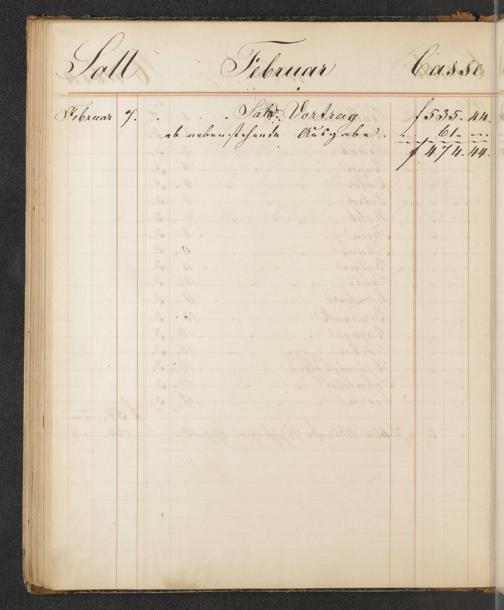 Soll Februar Casse
Februar 7. Saldo Vortrag f 535. 44.
ab nebenstehende Ausgabe. " 61. —.
f 474. 44.